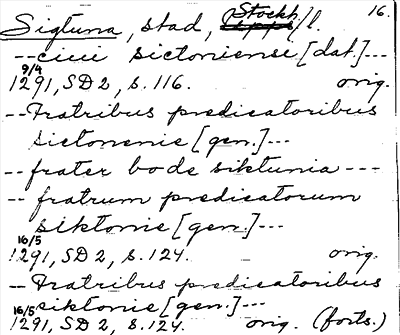 Sigtuna, stad, Stockh./l. 16.
--ciui sictoniense [dat.]---
9/4 1291, SD 2, s. 116. orig.
--Fratribus predicatoribus
sictonenie [gen.]---
--frater bode siktunia ---
-- fratrum predicatorum
siktonie [gen.]---
16/5 1291, SD 2, s. 124. orig.
-- Fratribus predicatoribus
siktonie [gen.]---
16/5 1291, SD 2, s. 124. orig. (forts.)